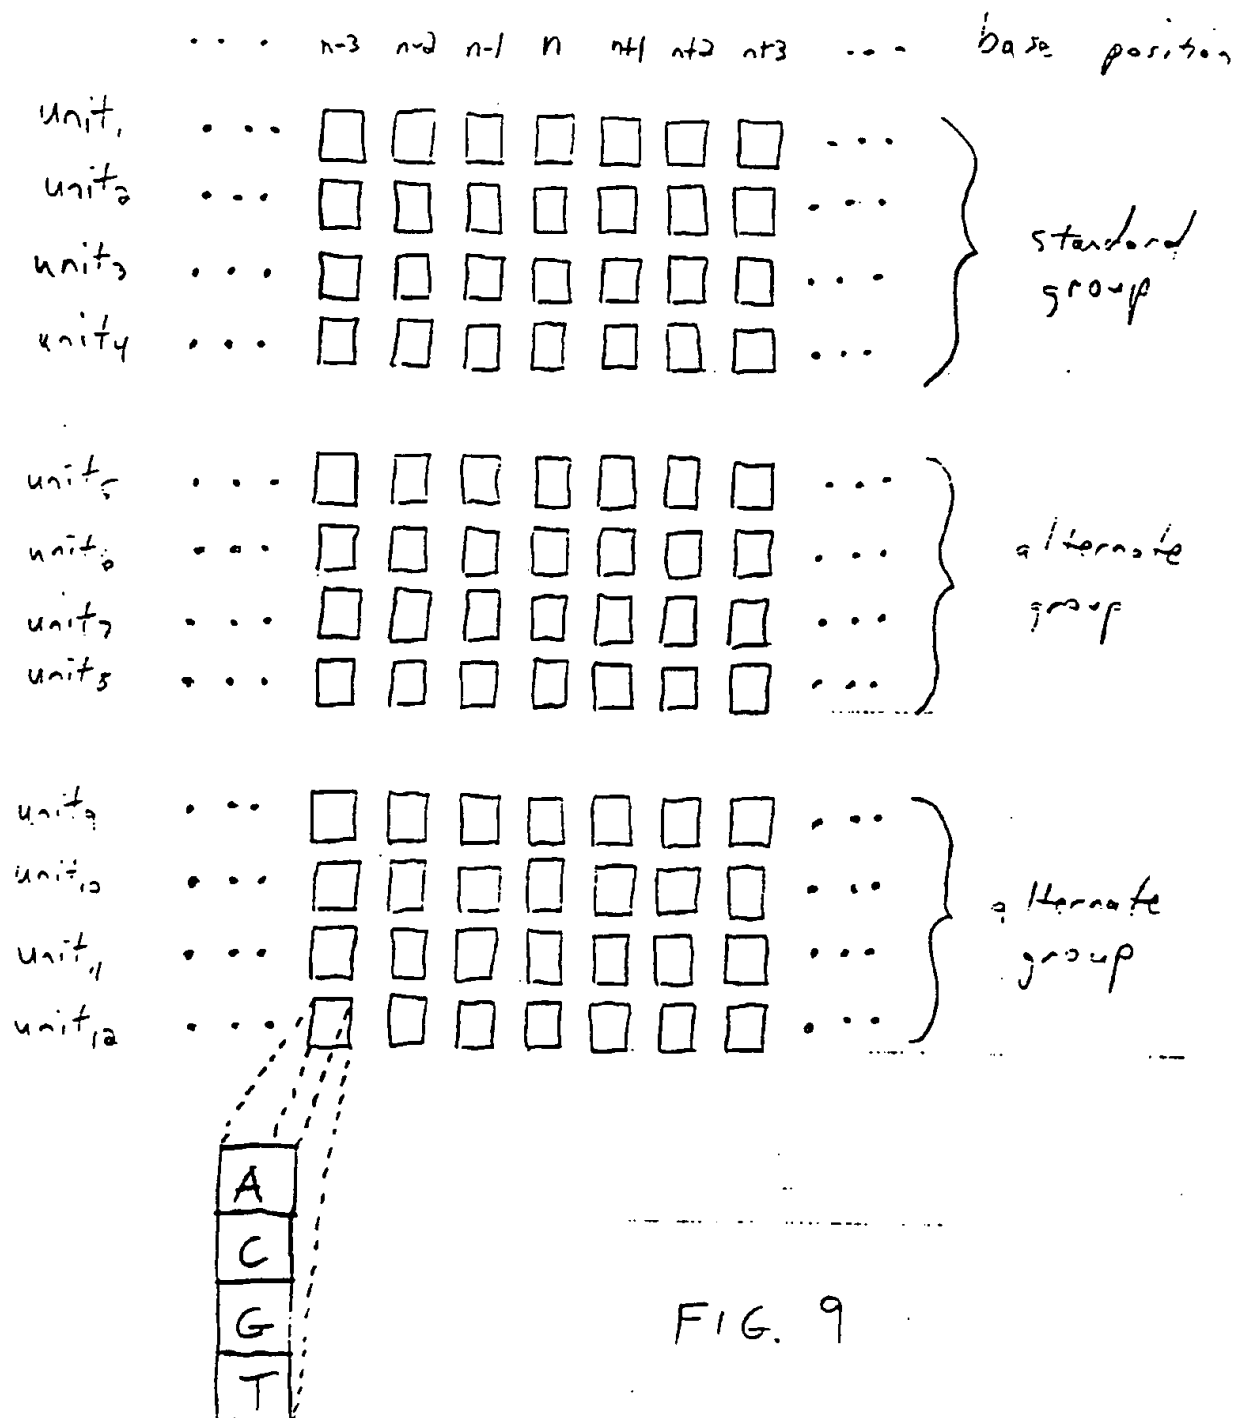 ... n-3 n-2 n-1 n n+1 n+2 n+3 ... base position
unit1 ... ...
unit2 ... ...
unit3 ... ...
unit4 ... ...
standard
group
unit5 ... ...
unit6 ... ...
unit7 ... ...
unit8 ... ...
alternate
group
unit9 ... ...
unit10 ... ...
unit11 ... ...
unit12 ... ...
alternate
group
A
C
G
T
FIG. 9